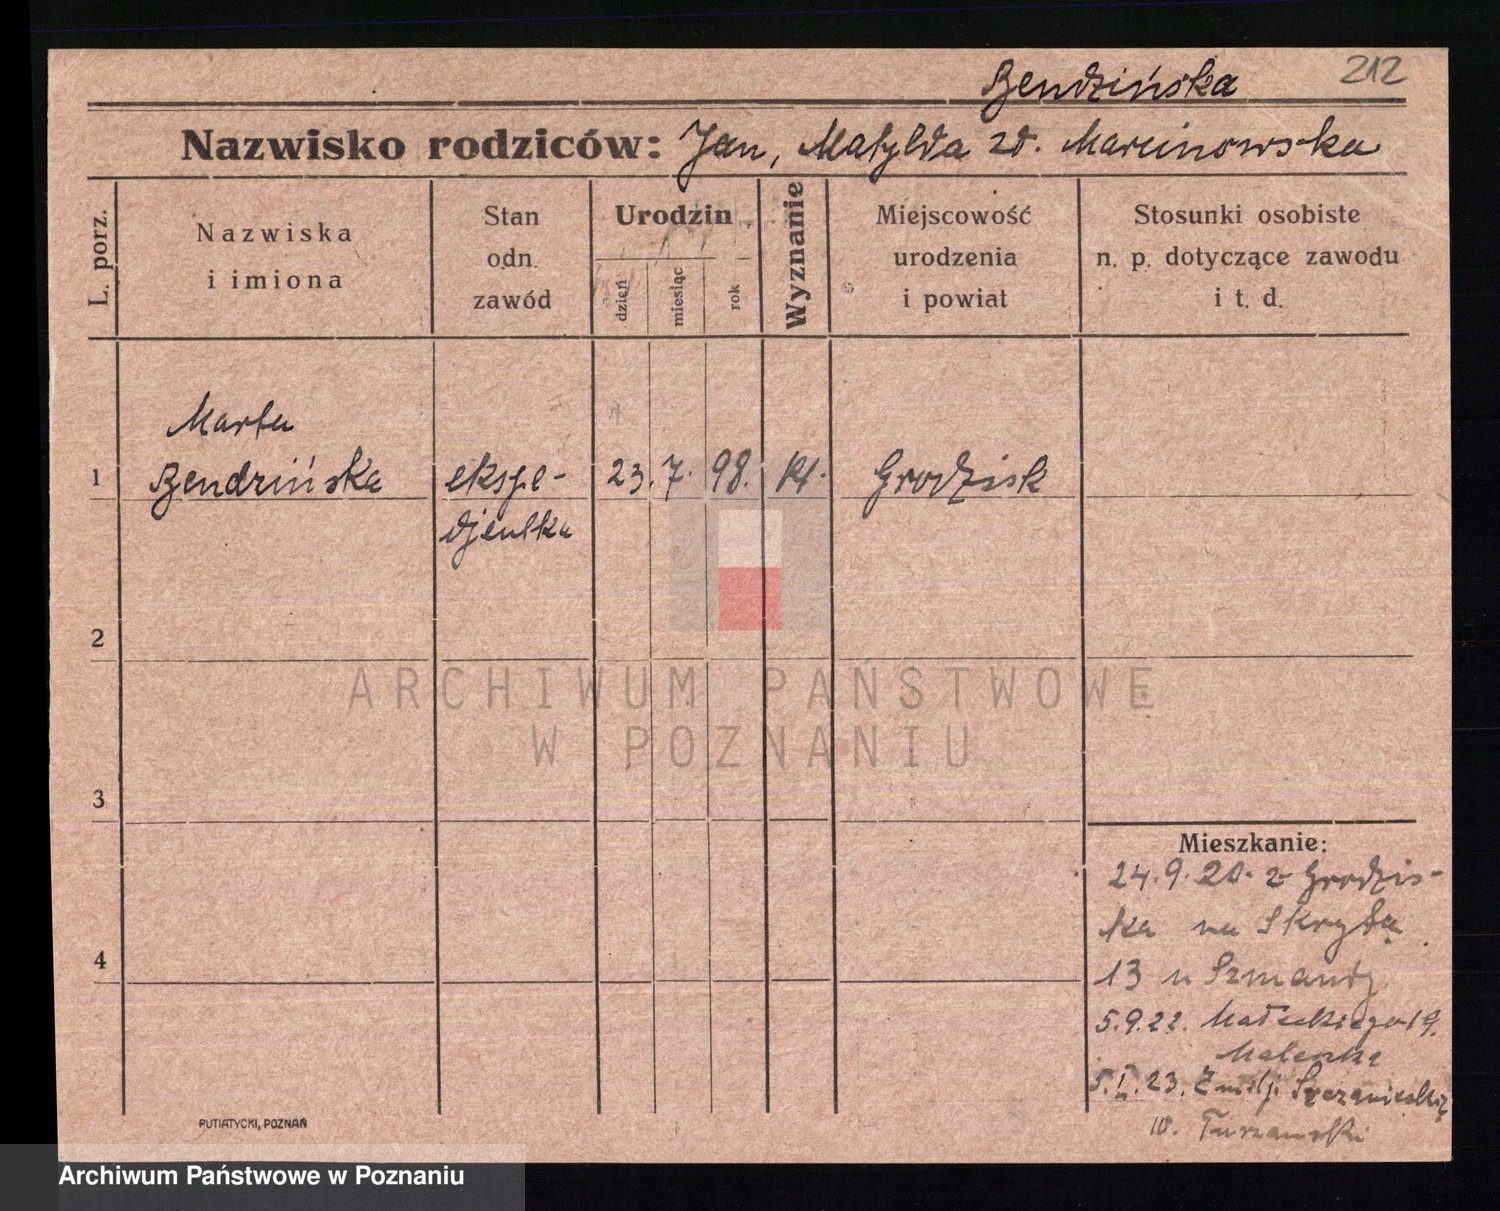 Bendzińska
212
Nazwisko rodziców: Jan, Matylda zd. Marcinowska
L. porz.
Nazwiska
i imiona
Stan
odn.
zawód
Urodzin
dzień
miesiąc
rok
Wyznanie
Miejscowość
urodzenia
i powiat
Stosunki osobiste
n. p. dotyczące zawodu
i t. d.
Marta
1 Bendzińska ekspe- 23. 7. 98. kt. Grodzisk
djentka
2
ARCHIWUM PAŃSTWOWE
W POZNANIU
3
Mieszkanie:
24.9.20. z Grodzis-
ka na Skrytą
4
13 u Szmandy
5.9.22. Małeckiego 19.
5.I.23. Emilji Sczanieckiej
10.
PUTIATYCKI, POZNAŃ
Archiwum Państwowe w Poznaniu